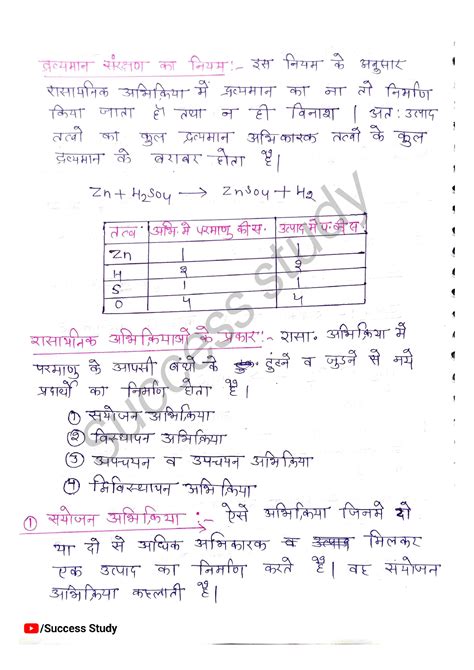 द्रव्यमान संरक्षण का नियम :- इस नियम के अनुसार
रासायनिक अभिक्रिया में द्रव्यमान का ना तो निर्माण
किया जाता हो तथा न ही विनाश। अतः उत्पाद
तत्वो का कुल द्रव्यमान अभिकारक तत्वो के कुल
द्रव्यमान के बराबर होता है।
Zn + H2SO4 → ZnSO4 + H2
तत्व अभि मे परमाणु की सं. उत्पाद मे प. की सं
Zn 1 1
H 2 2
S 1 1
O 4 4
रासायनिक अभिक्रियाओं के प्रकार :- रासा. अभिक्रिया में
परमाणु के आपसी बंधो के टुटने व जुडने से नये
पदार्थो का निर्माण होता है।
① सयोजन अभिक्रिया
② विस्थापन अभिक्रिया
③ अपचयन व उपचयन अभिक्रिया
④ द्विविस्थापन अभिक्रिया
① सयोजन अभिक्रिया :- ऐसे अभिक्रिया जिनमे दो
या दो से अधिक अभिकारक मिलकर
एक उत्पाद का निर्माण करते है। वह सयोजन
अभिक्रिया कहलाती है।
success study
/Success Study